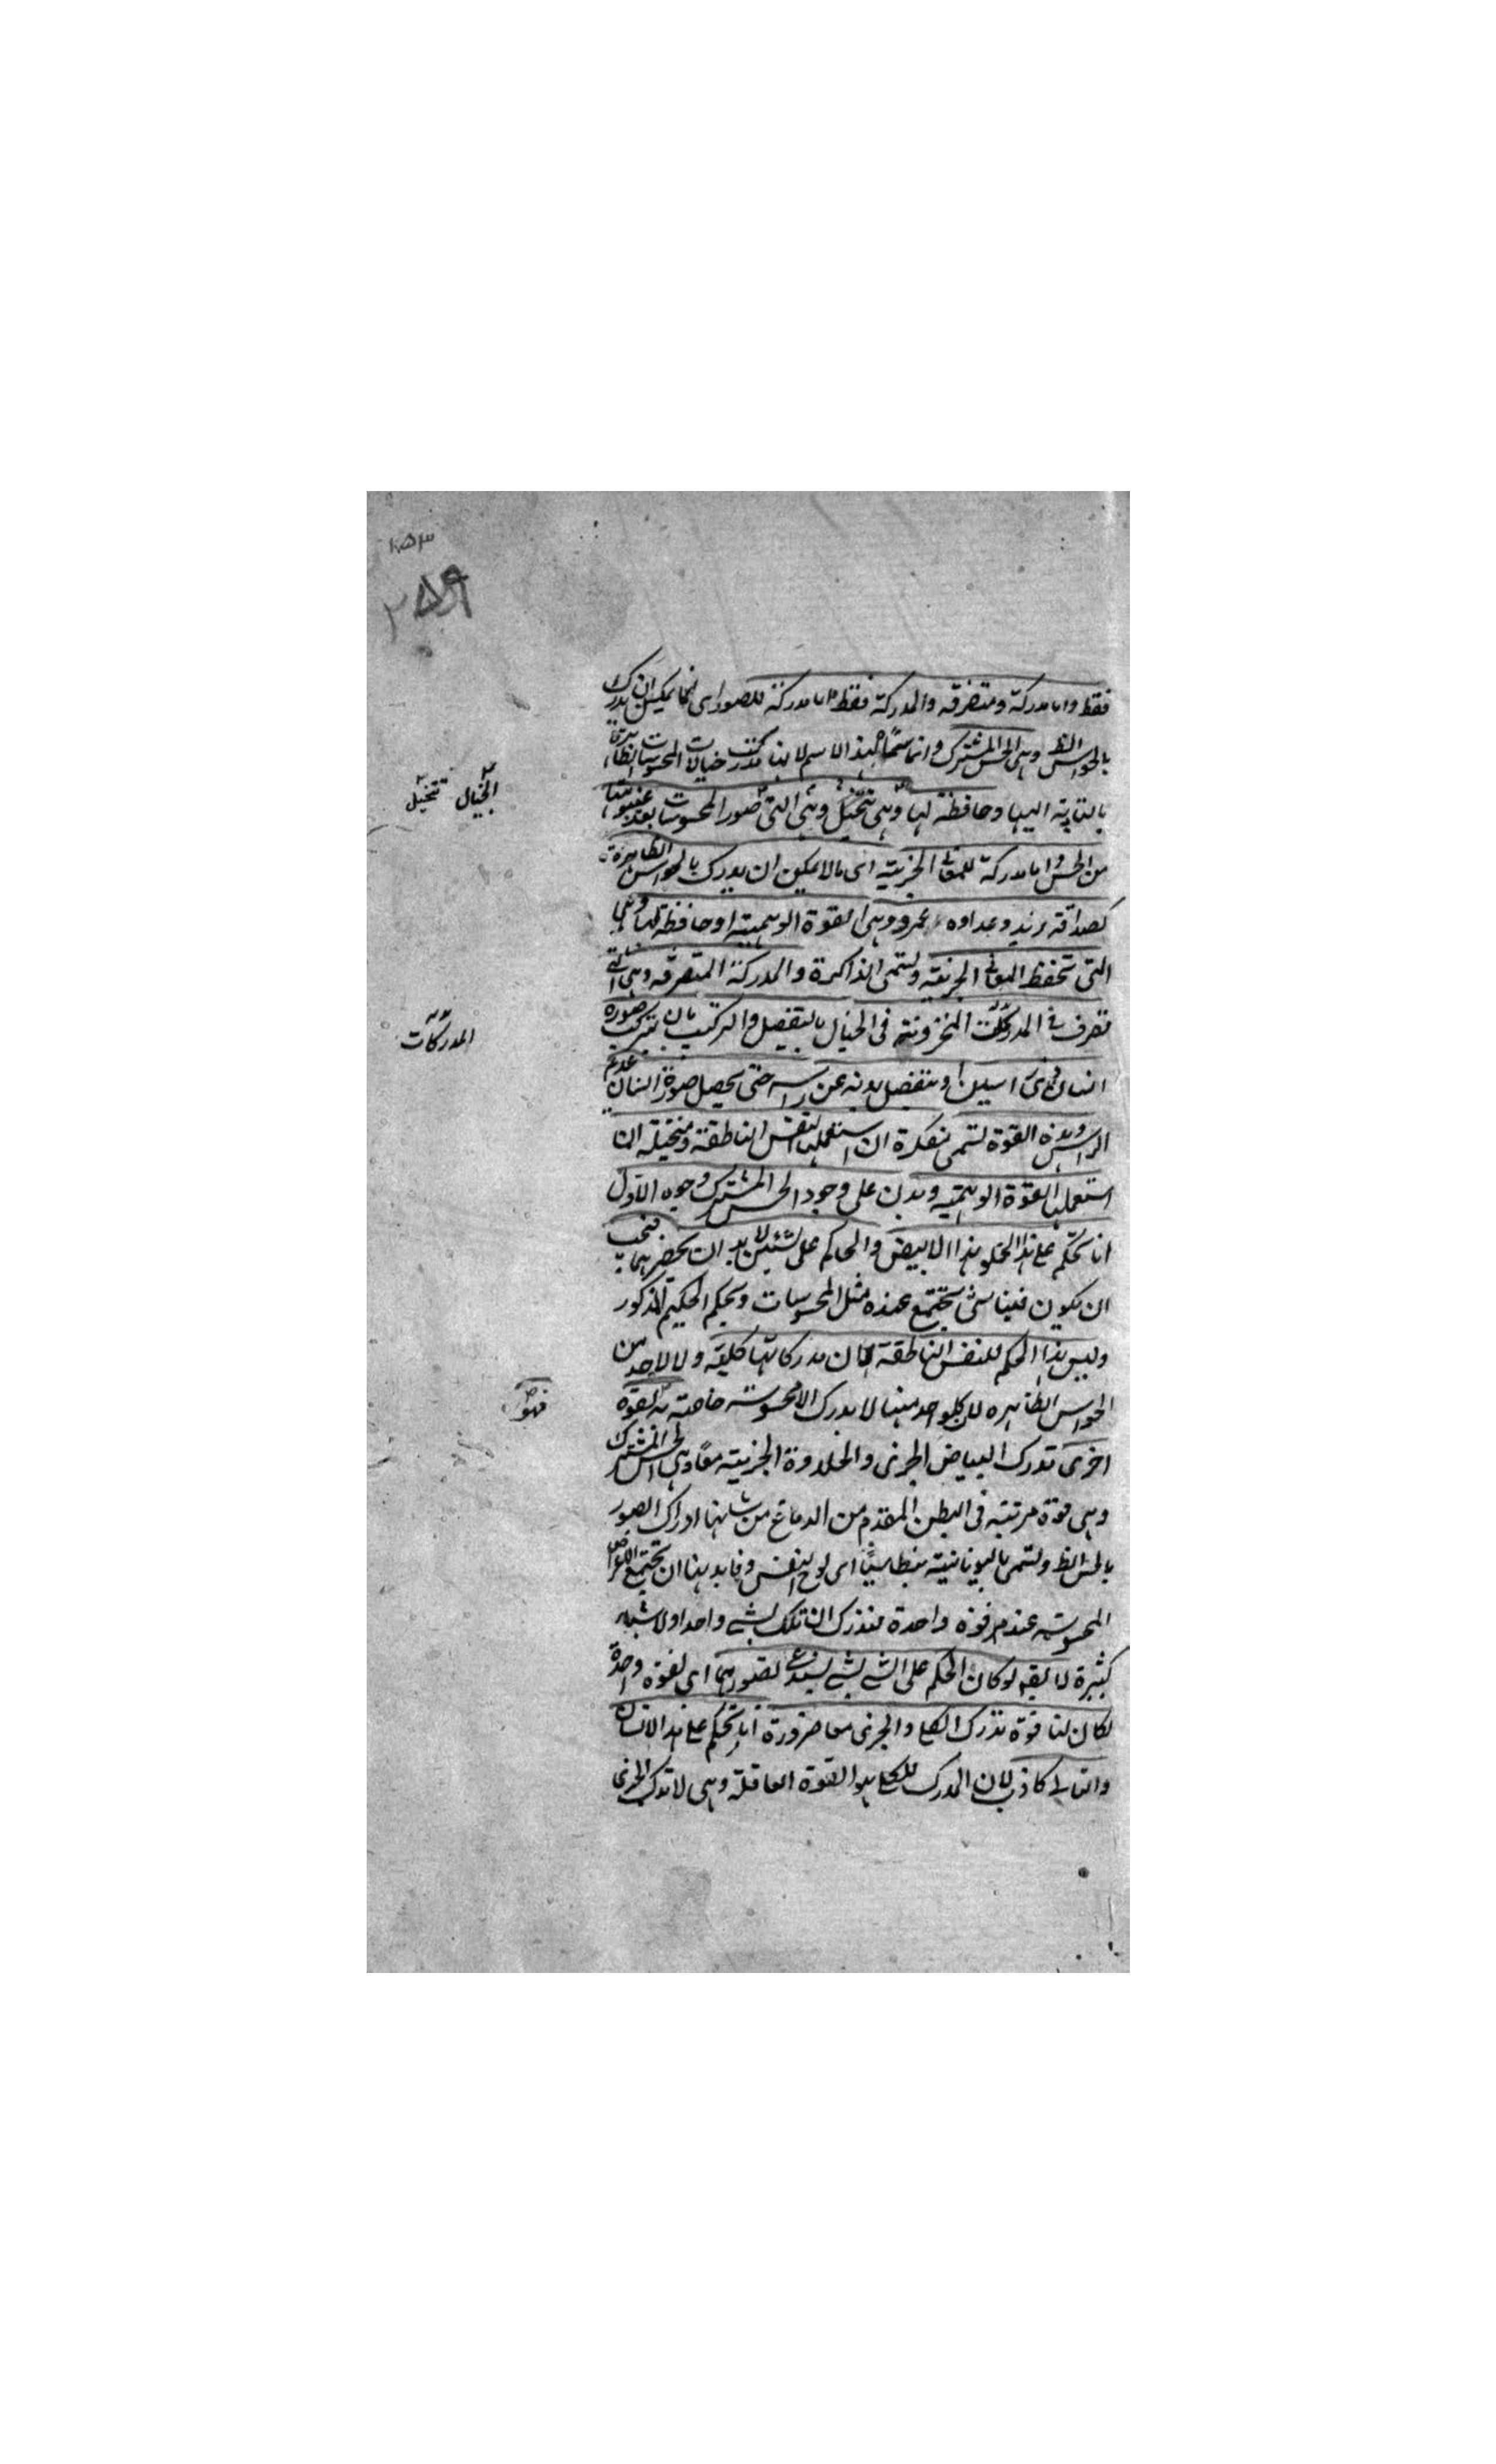 ١٥٣
٢٥٩
فقط واما مدركة ومتصرفه والمدركة فقط اما مدركة للصور اى لما يمكن ان يدرك
بالحواس الظ وهى الحس المشترك وانما سمّا بهذا الاسم لانها تدرك خيالات المحسوسات الظاهرة
بالتادية اليها وحافظة لها وهى تتخيل وهى التى صور المحسوسات بعد غيبوبتها
الخيال تتخيل
من الحس واما مدركة للمعانى الجزيية اى ما لا يمكن ان يدرك بالحواس الظاهرة
كصداقة زيد وعداوه عمرو وهى القوة الوهمية او حافظة لها وهى
التى تحفظ المعانى الجزئية وتسمى الذاكرة والمدركة المتصرفه وهى التى
تصرف فى المدركات المخزونة فى الخيال بالتفصيل والتركيب بان تركب صورة
المدركات
انسان ذى راسين او بتفصيل بدنه عن راسه حتى يحصل صورة انسان عديم
الراس وهذه القوة تسمى مفكرة ان استعملها النفس الناطقة ومتخيلة ان
استعملها القوة الوهمية ويدل على وجود الحس المشترك وجوه الاول
انا نحكم على هذا الحلو هذا الابيض والحاكم على شيئين لا بد ان يحضرهما فيجب
ان يكون فينا شئ تجتمع عنده مثل المحسوسات ويحكم الحكم المذكور
وليس هذا الحكم للنفس الناطقة لان مدركاتها كلية ولا لاحد من
الحواس الظاهره لان كلواحد منها لا يدرك الا محسوسه خاصة القوة
فهو
اخرى تدرك البياض الجزئى والحلاوة الجزيية معًا وهى الحس المشترك
وهى قوة مرتبة فى البطن المقدم من الدماغ من شانها ادراك الصور
بالحس الظ وتسمى باليونانية بنطاسيا اى لوح النفس وفايدتها ان تجتمع
المحسوسه عند قوة واحدة فتدرك ان تلك لشئ واحد او لاشياء
كثيرة لا يقه لو كان الحكم على الشئ بشئ يستدعى تصورهما اى لقوة واحدة
لكان لنا قوة تدرك الكلى والجزئى معا ضرورة انا نحكم على هذا الانسان
والتالى كاذب لان المدرك للكلى هو القوة العاقلة وهى لا تدرك الجزئى